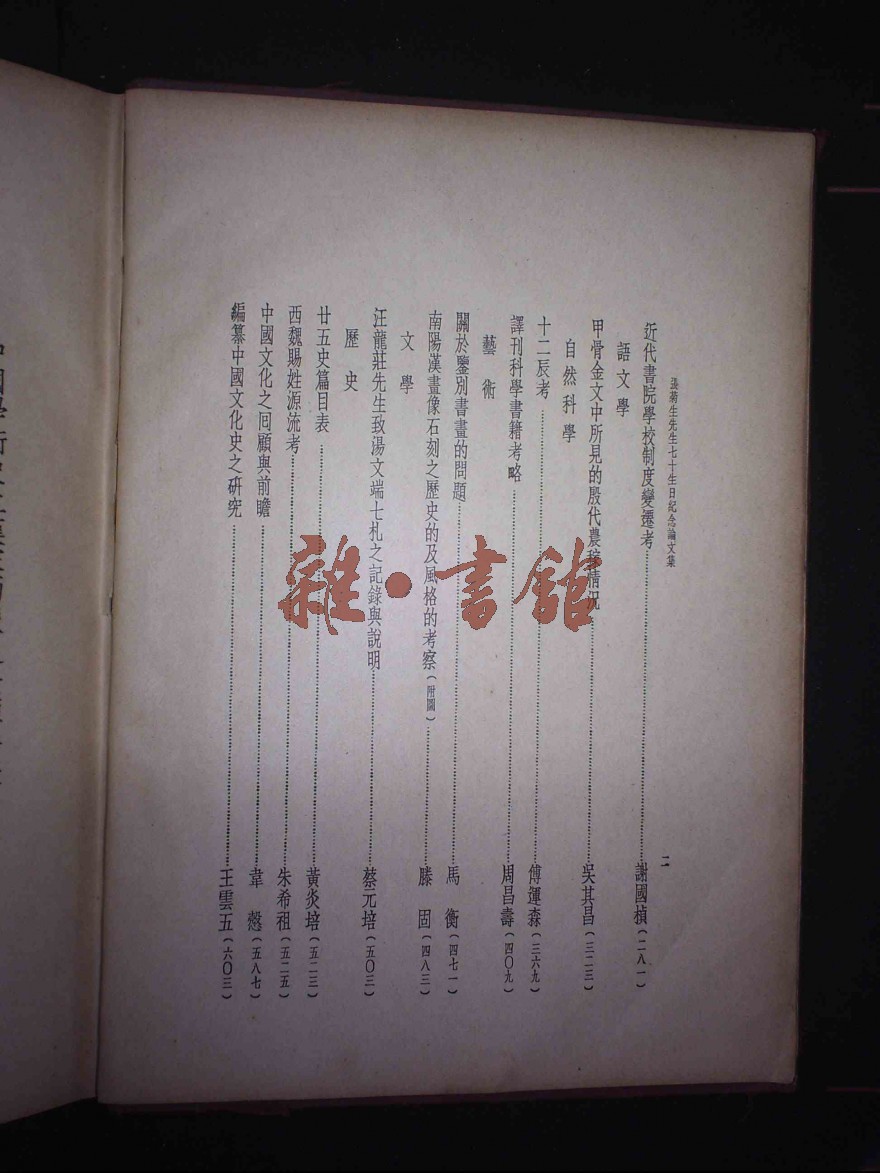 張菊生先生七十生日紀念論文集
二
近代書院學校制度變遷考……謝國楨(二八一)
語文學
甲骨金文中所見的殷代農稼情況……吳其昌(三二三)
自然科學
十二辰考……傅運森(三六九)
譯刊科學書籍考略……周昌壽(四〇九)
藝術
關於鑒別書畫的問題……馬衡(四七一)
南陽漢畫像石刻之歷史的及風格的考察(附圖)……滕固(四八三)
文學
汪龍莊先生致湯文端七札之記錄與說明……蔡元培(五〇三)
歷史
廿五史篇目表……黃炎培(五二三)
西魏賜姓源流考……朱希祖(五二五)
中國文化之回顧與前瞻……韋慤(五八七)
編纂中國文化史之研究……王雲五(六〇三)
雜·書館